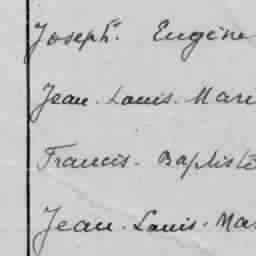 Joseph. Eugène
Jean. Louis. Mari
Francis. Baptiste
Jean. Louis. Mar